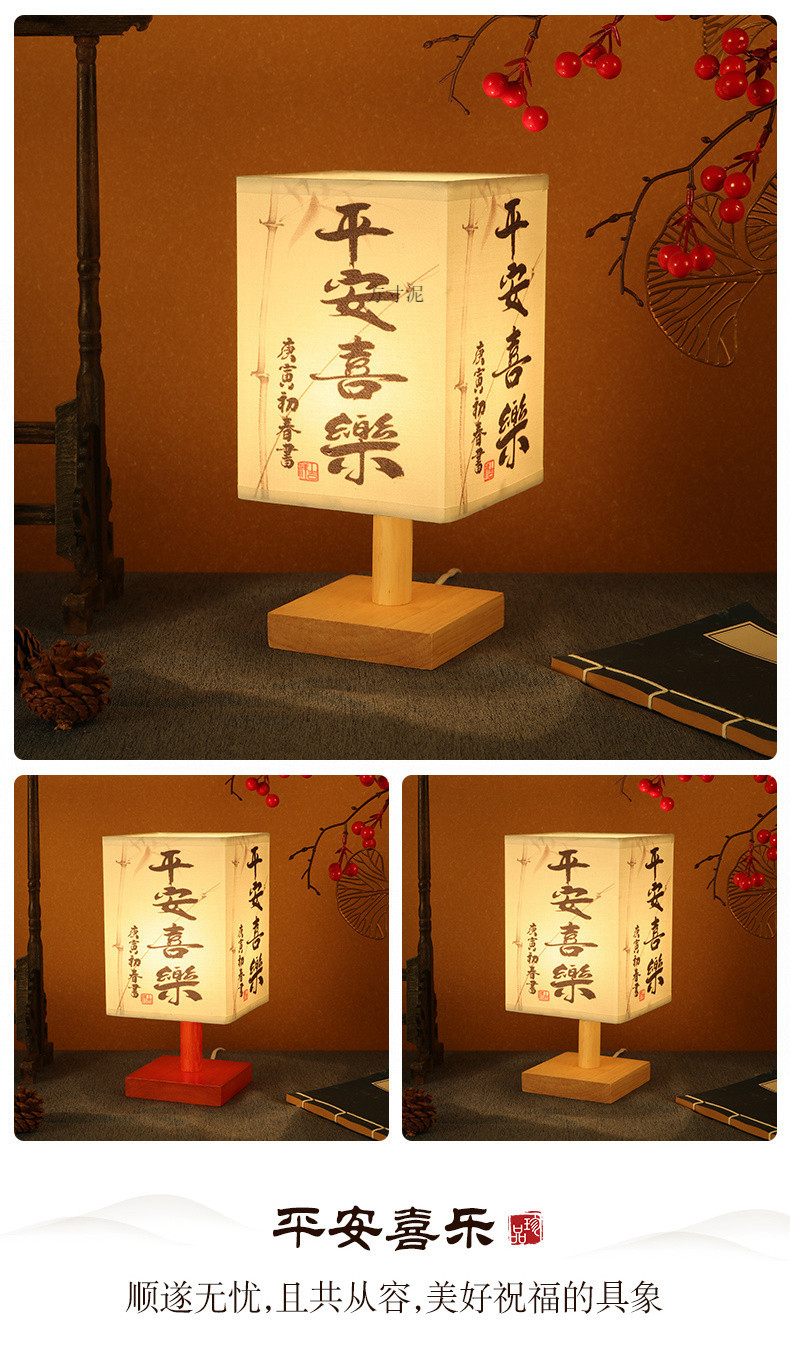 平安喜樂
庚寅初春書
平安喜樂
庚寅初春書
方寸泥
平安喜樂
庚寅初春書
平安喜樂
庚寅初春書
平安喜樂
庚寅初春書
平安喜樂
庚寅初春書
平安喜乐
珍品
顺遂无忧,且共从容,美好祝福的具象